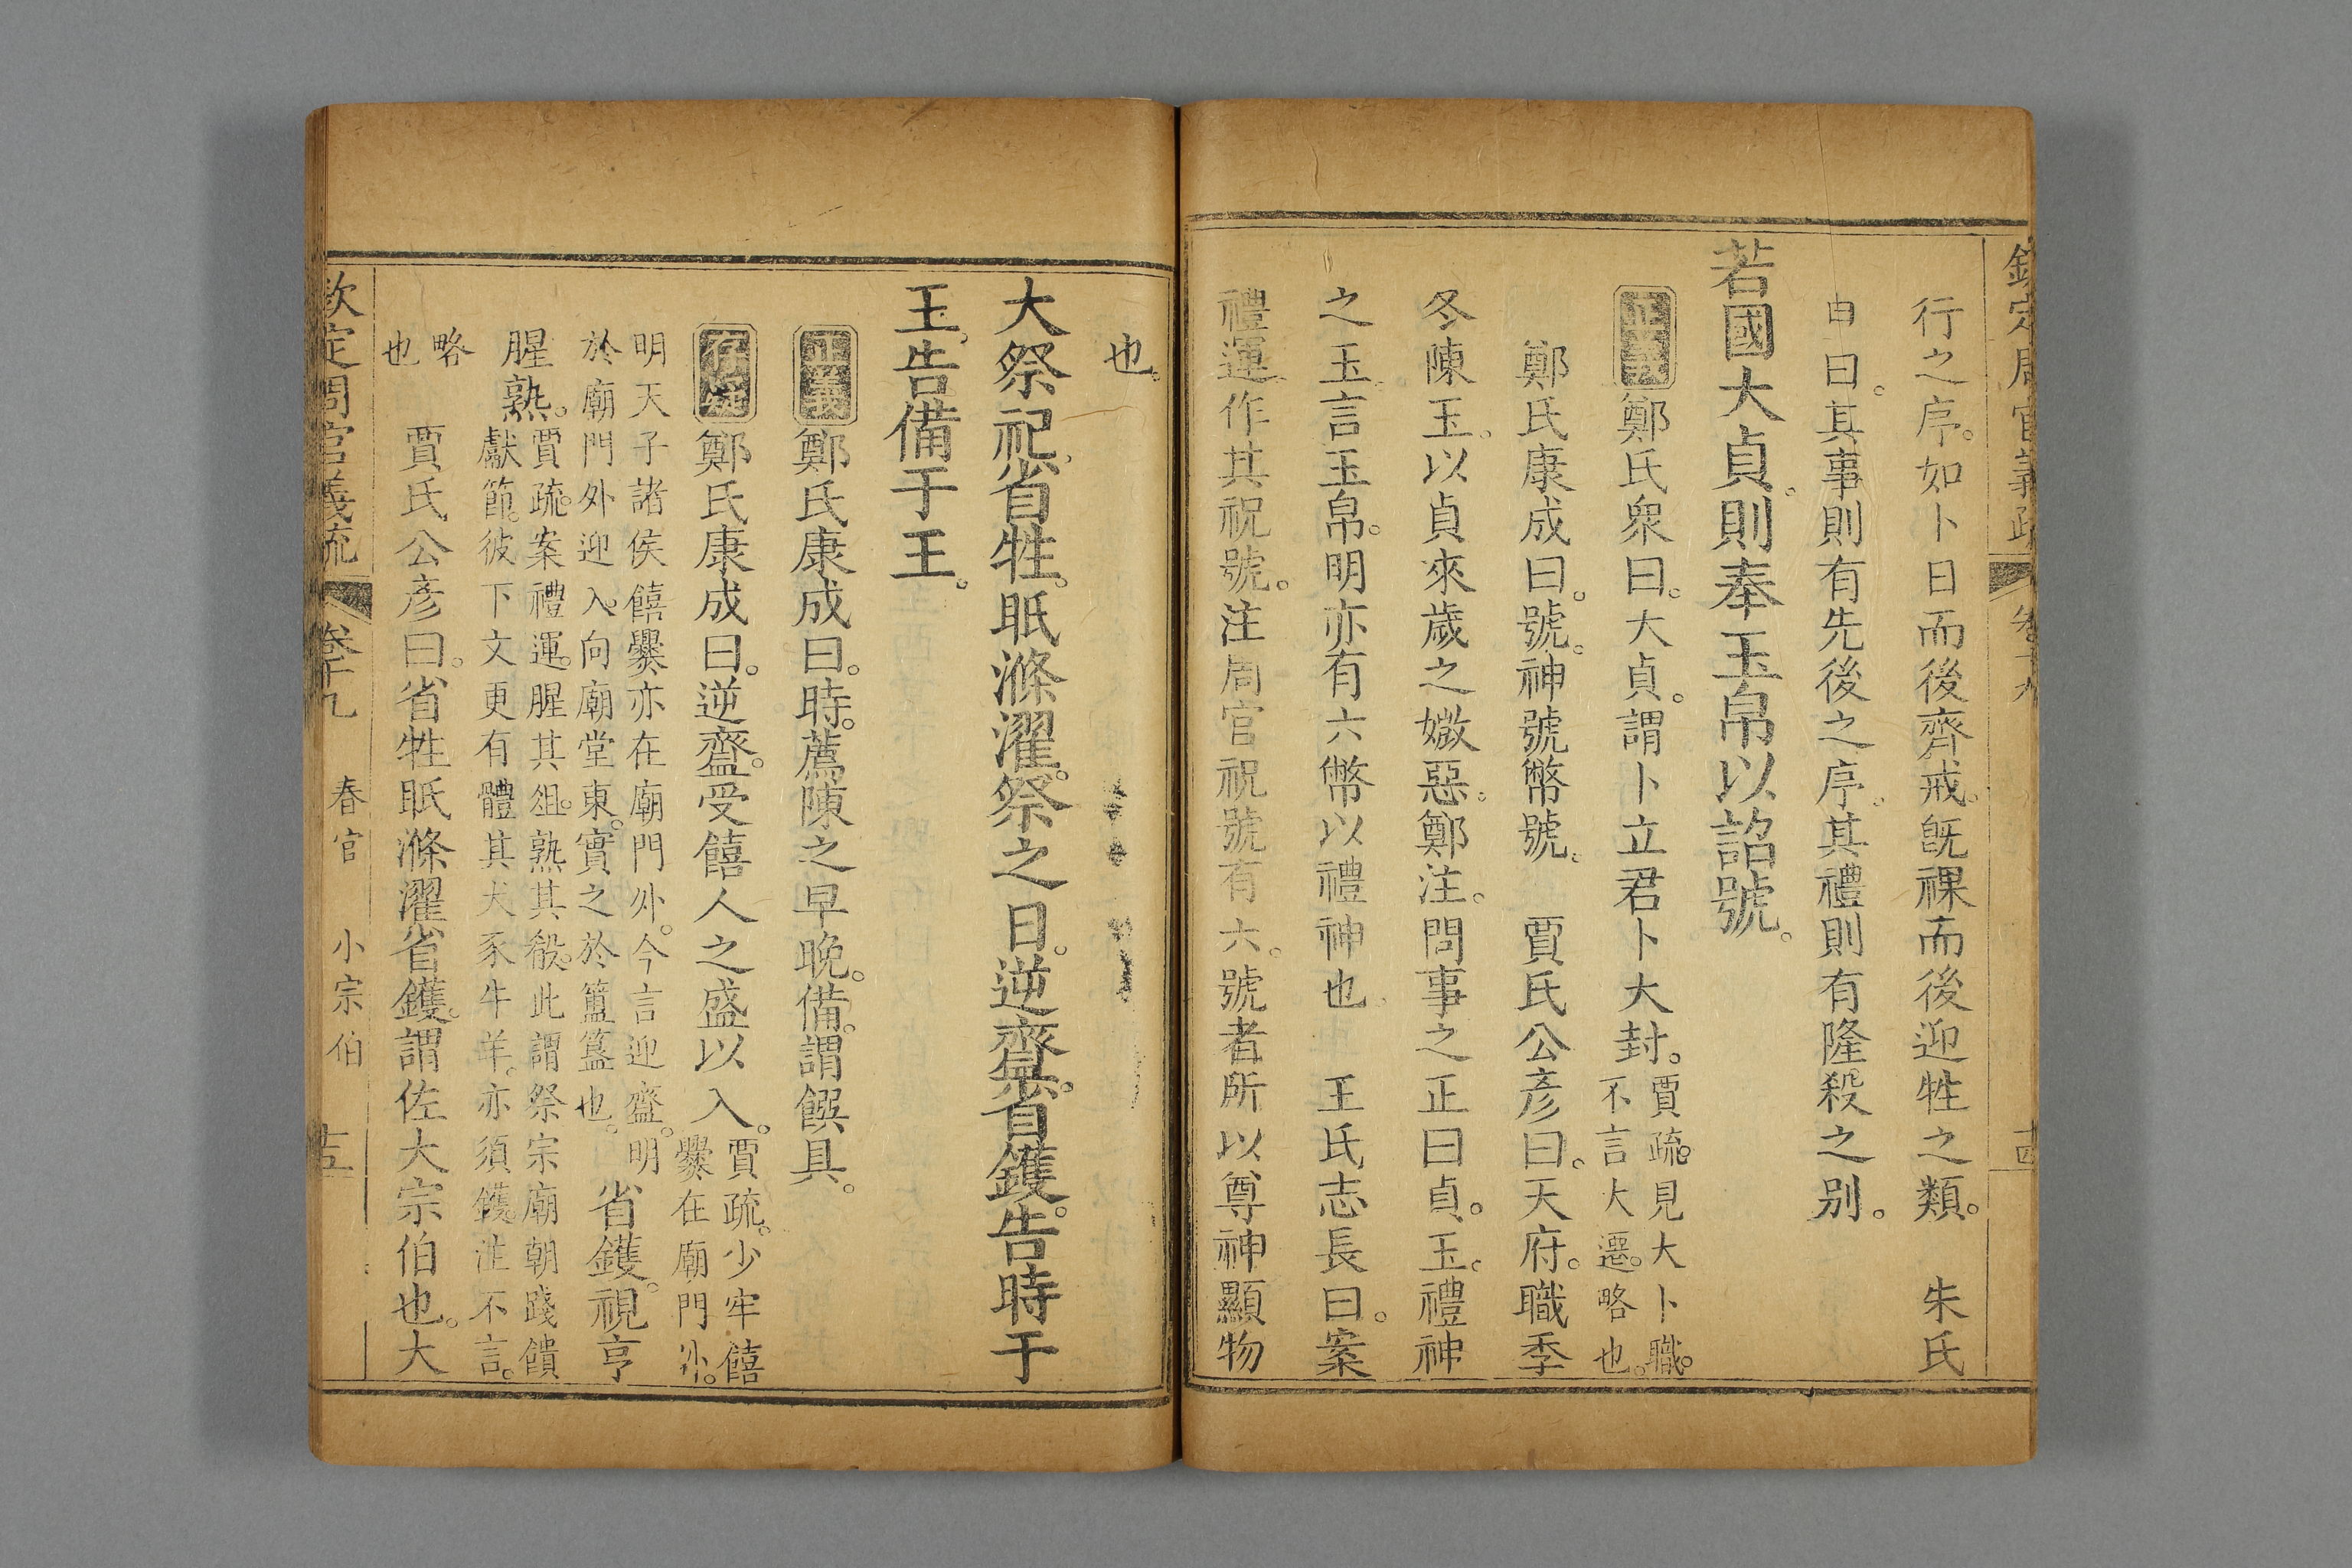 欽定周官義疏 卷十九 十四
行之序。如卜日而後齊戒。旣祼而後迎牲之類。 朱氏
申曰。其事則有先後之序。其禮則有隆殺之别。
若國大貞。則奉玉帛以詔號。
正義 鄭氏衆曰。大貞。謂卜立君卜大封。賈疏。見大卜職。不言大遷。略也。
鄭氏康成曰。號。神號幣號。 賈氏公彥曰。天府。職季
冬陳玉。以貞來歲之媺惡。鄭注。問事之正曰貞。玉。禮神
之玉言玉帛。明亦有六幣以禮神也。 王氏志長曰。案
禮運作其祝號。注周官祝號有六。號者所以尊神顯物
也。
大祭祀。省牲。眂滌濯。祭之日。逆齍。省鑊。告時于
王。告備于王。
正義 鄭氏康成曰。時。薦陳之早晚。備。謂饌具。
存疑 鄭氏康成曰。逆齍。受饎人之盛以入。賈疏。少牢饎爨在廟門外。
明天子諸侯饎爨亦在廟門外。今言迎齍。明於廟門外迎入。向廟堂東。實之於簠簋也。省鑊。視亨
腥熟。賈疏。案禮運。腥其俎。熟其殽。此謂祭宗廟朝踐饋獻節。彼下文更有體其犬豕牛羊。亦須鑊。注不言。
略也 賈氏公彥曰。省牲眂滌濯省鑊。謂佐大宗伯也。大
欽定周官義疏 卷十九 春官 小宗伯 十五